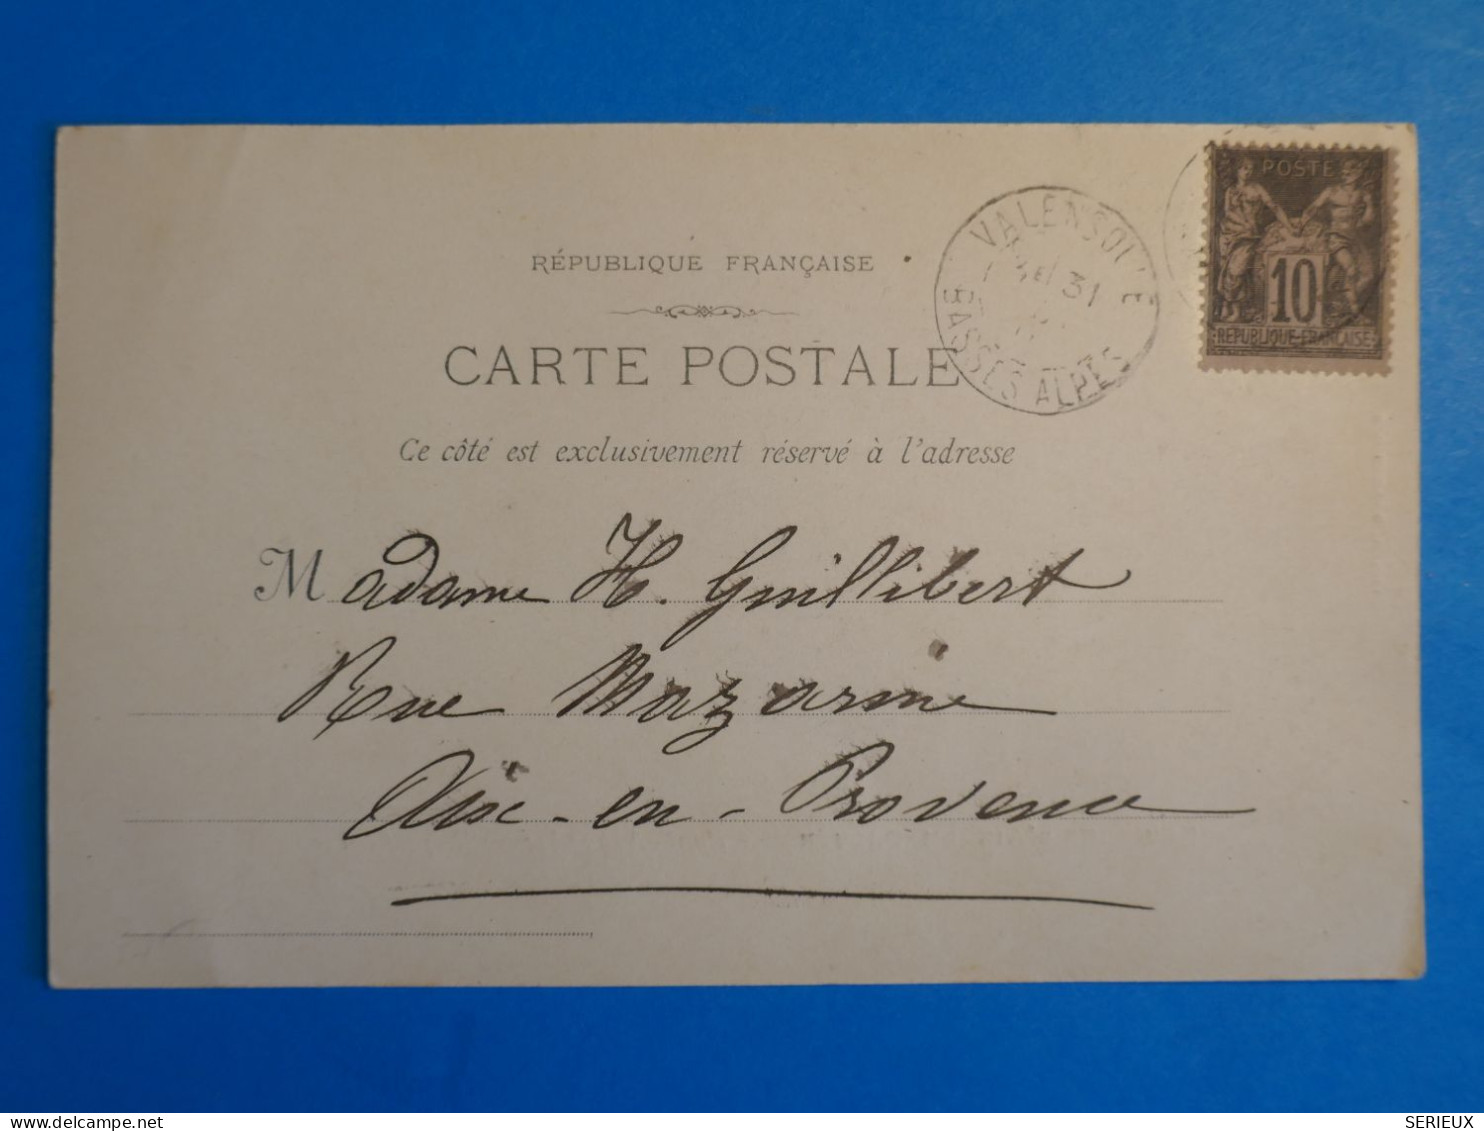 POSTE
10
REPUBLIQUE FRANÇAISE
VALENSOLE
31
BASSES ALPES
RÉPUBLIQUE FRANÇAISE
CARTE POSTALE
Ce côté est exclusivement réservé à l'adresse
Madame H. Guillibert
Rue Mazarine
Aix-en-Provence
delcampe.net
SERIEUX